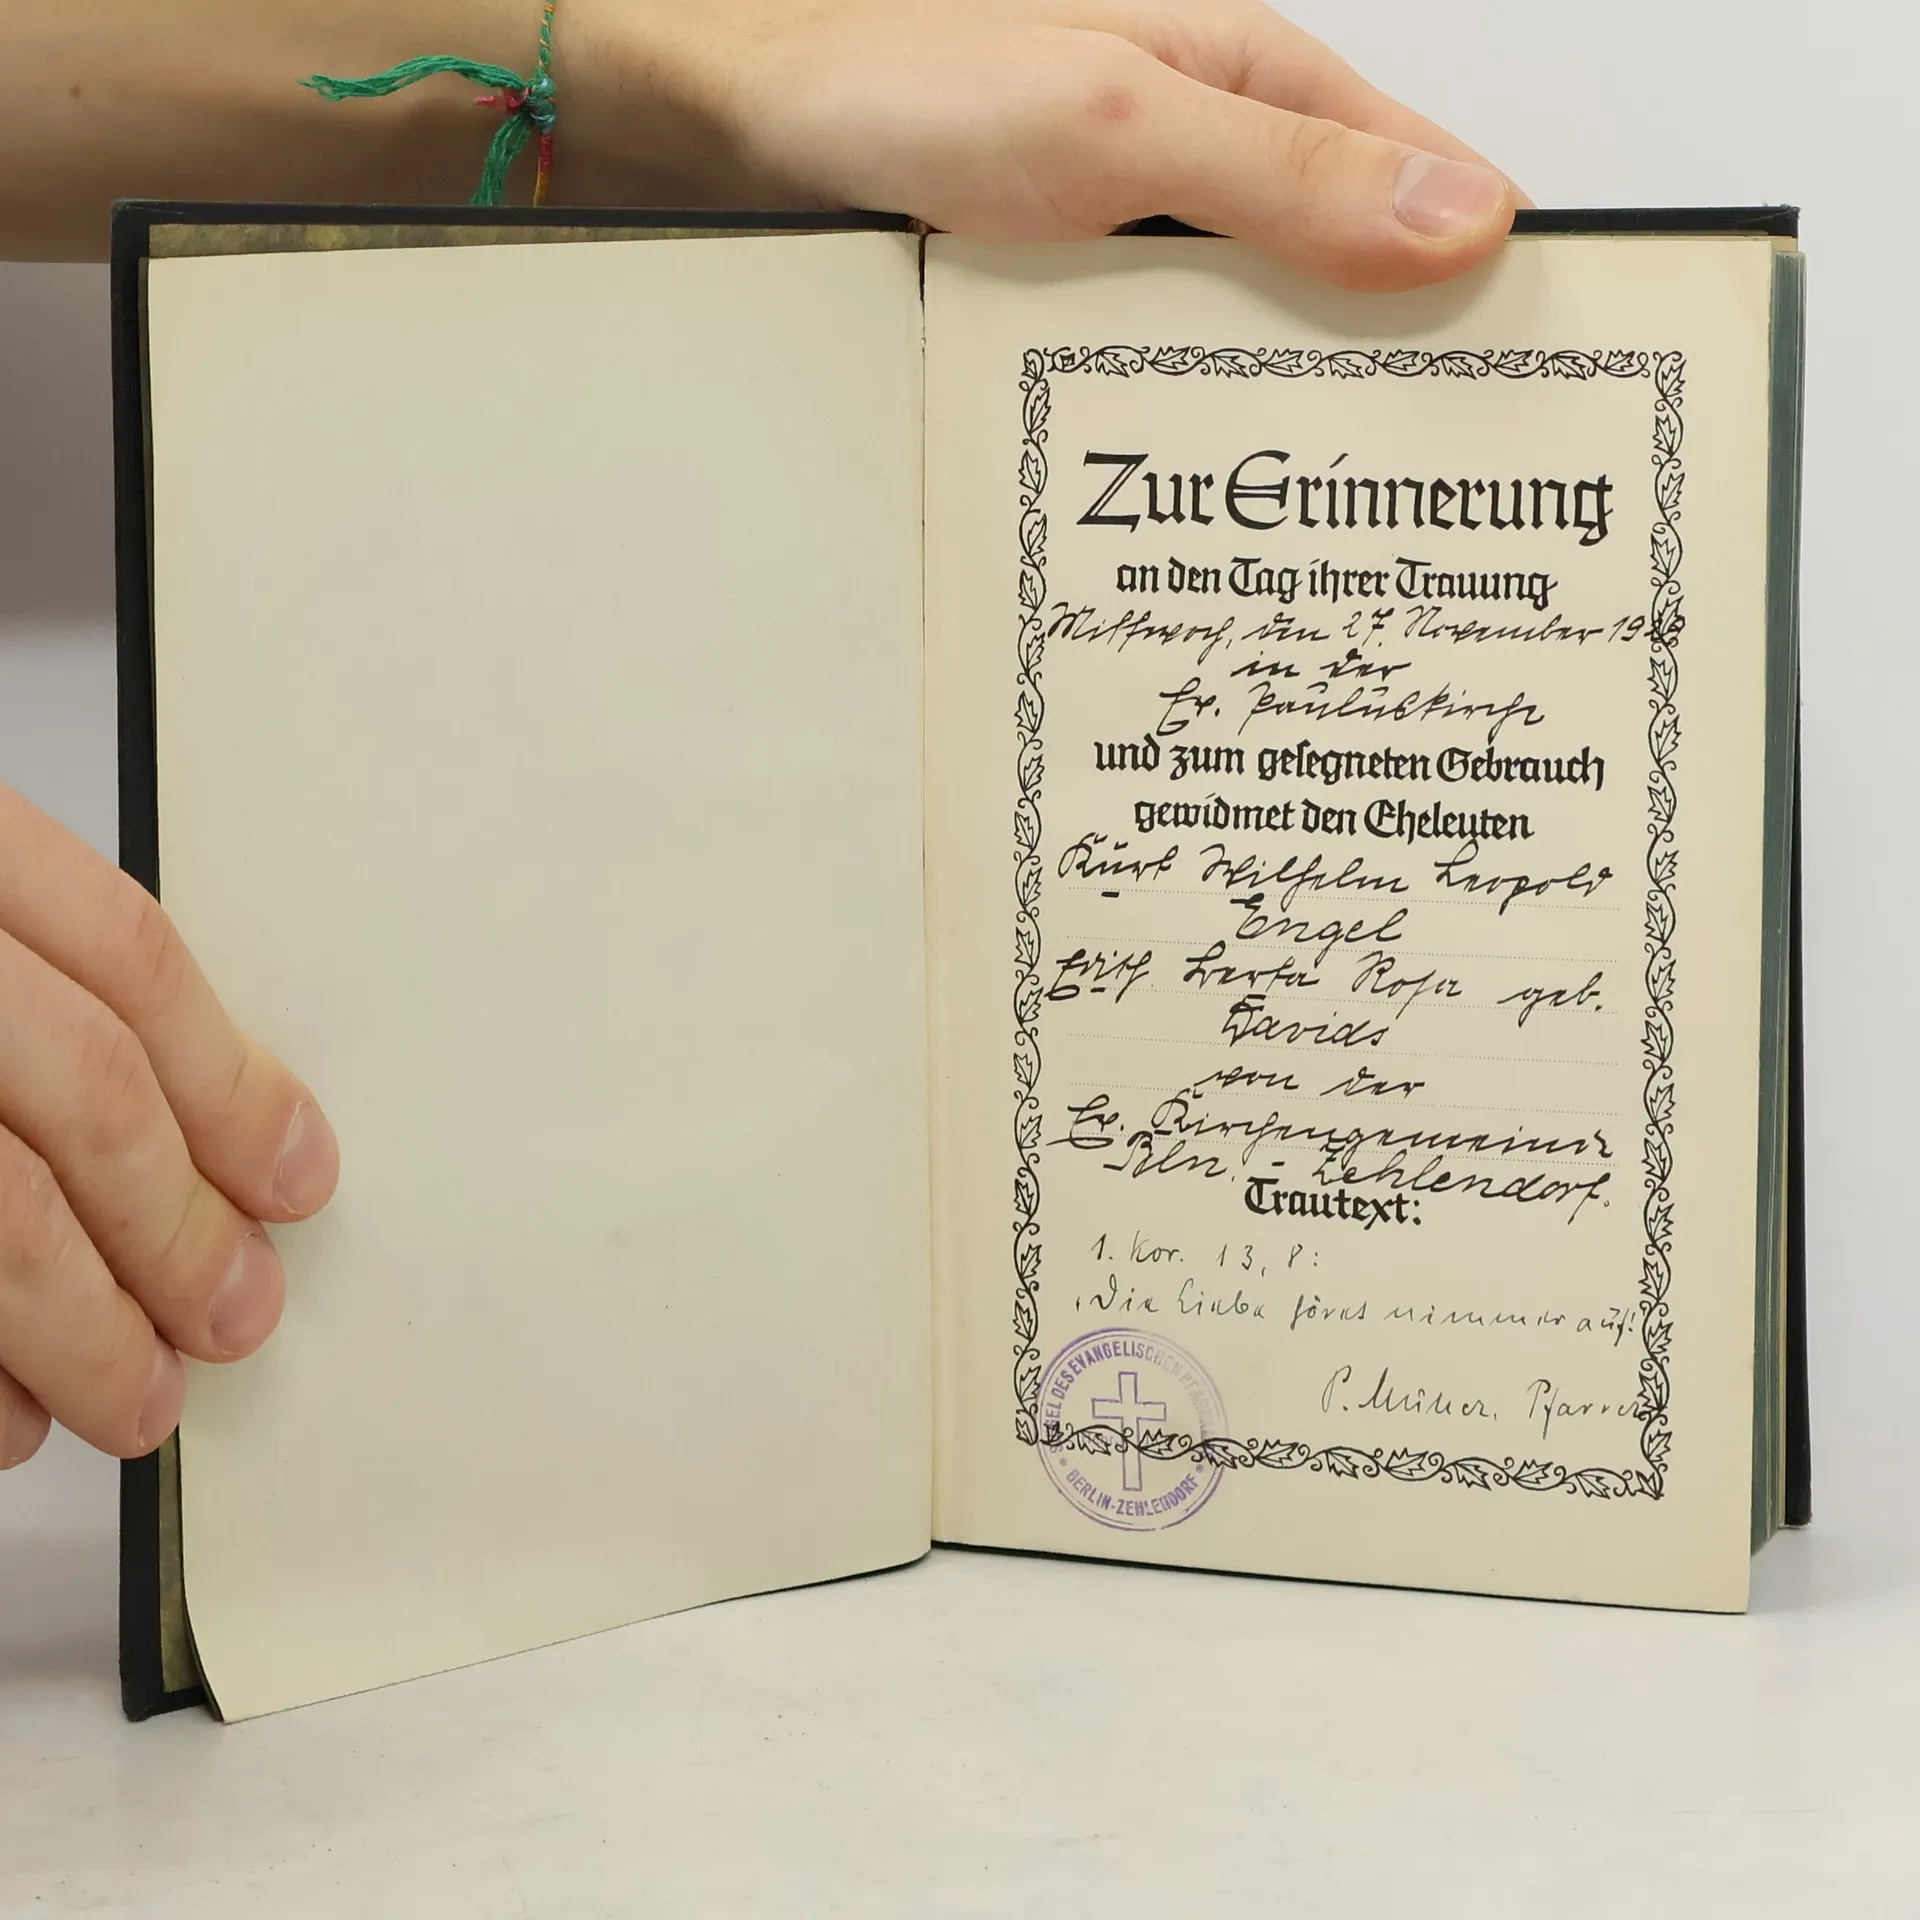 Zur Erinnerung
an den Tag ihrer Trauung
Mittwoch, den 27. November 19
in der
Ev. Pauluskirche
und zum gesegneten Gebrauch
gewidmet den Eheleuten
Kurt Wilhelm Leopold
Engel
Edith Berta Rosa geb.
Davids
von der
Ev. Kirchengemeinde
Bln. - Zehlendorf.
Trautext:
1. Kor. 13, 8:
„Die Liebe höret nimmer auf!
P. Müller, Pfarrer
SIEGEL DES EVANGELISCHEN
* BERLIN-ZEHLENDORF *